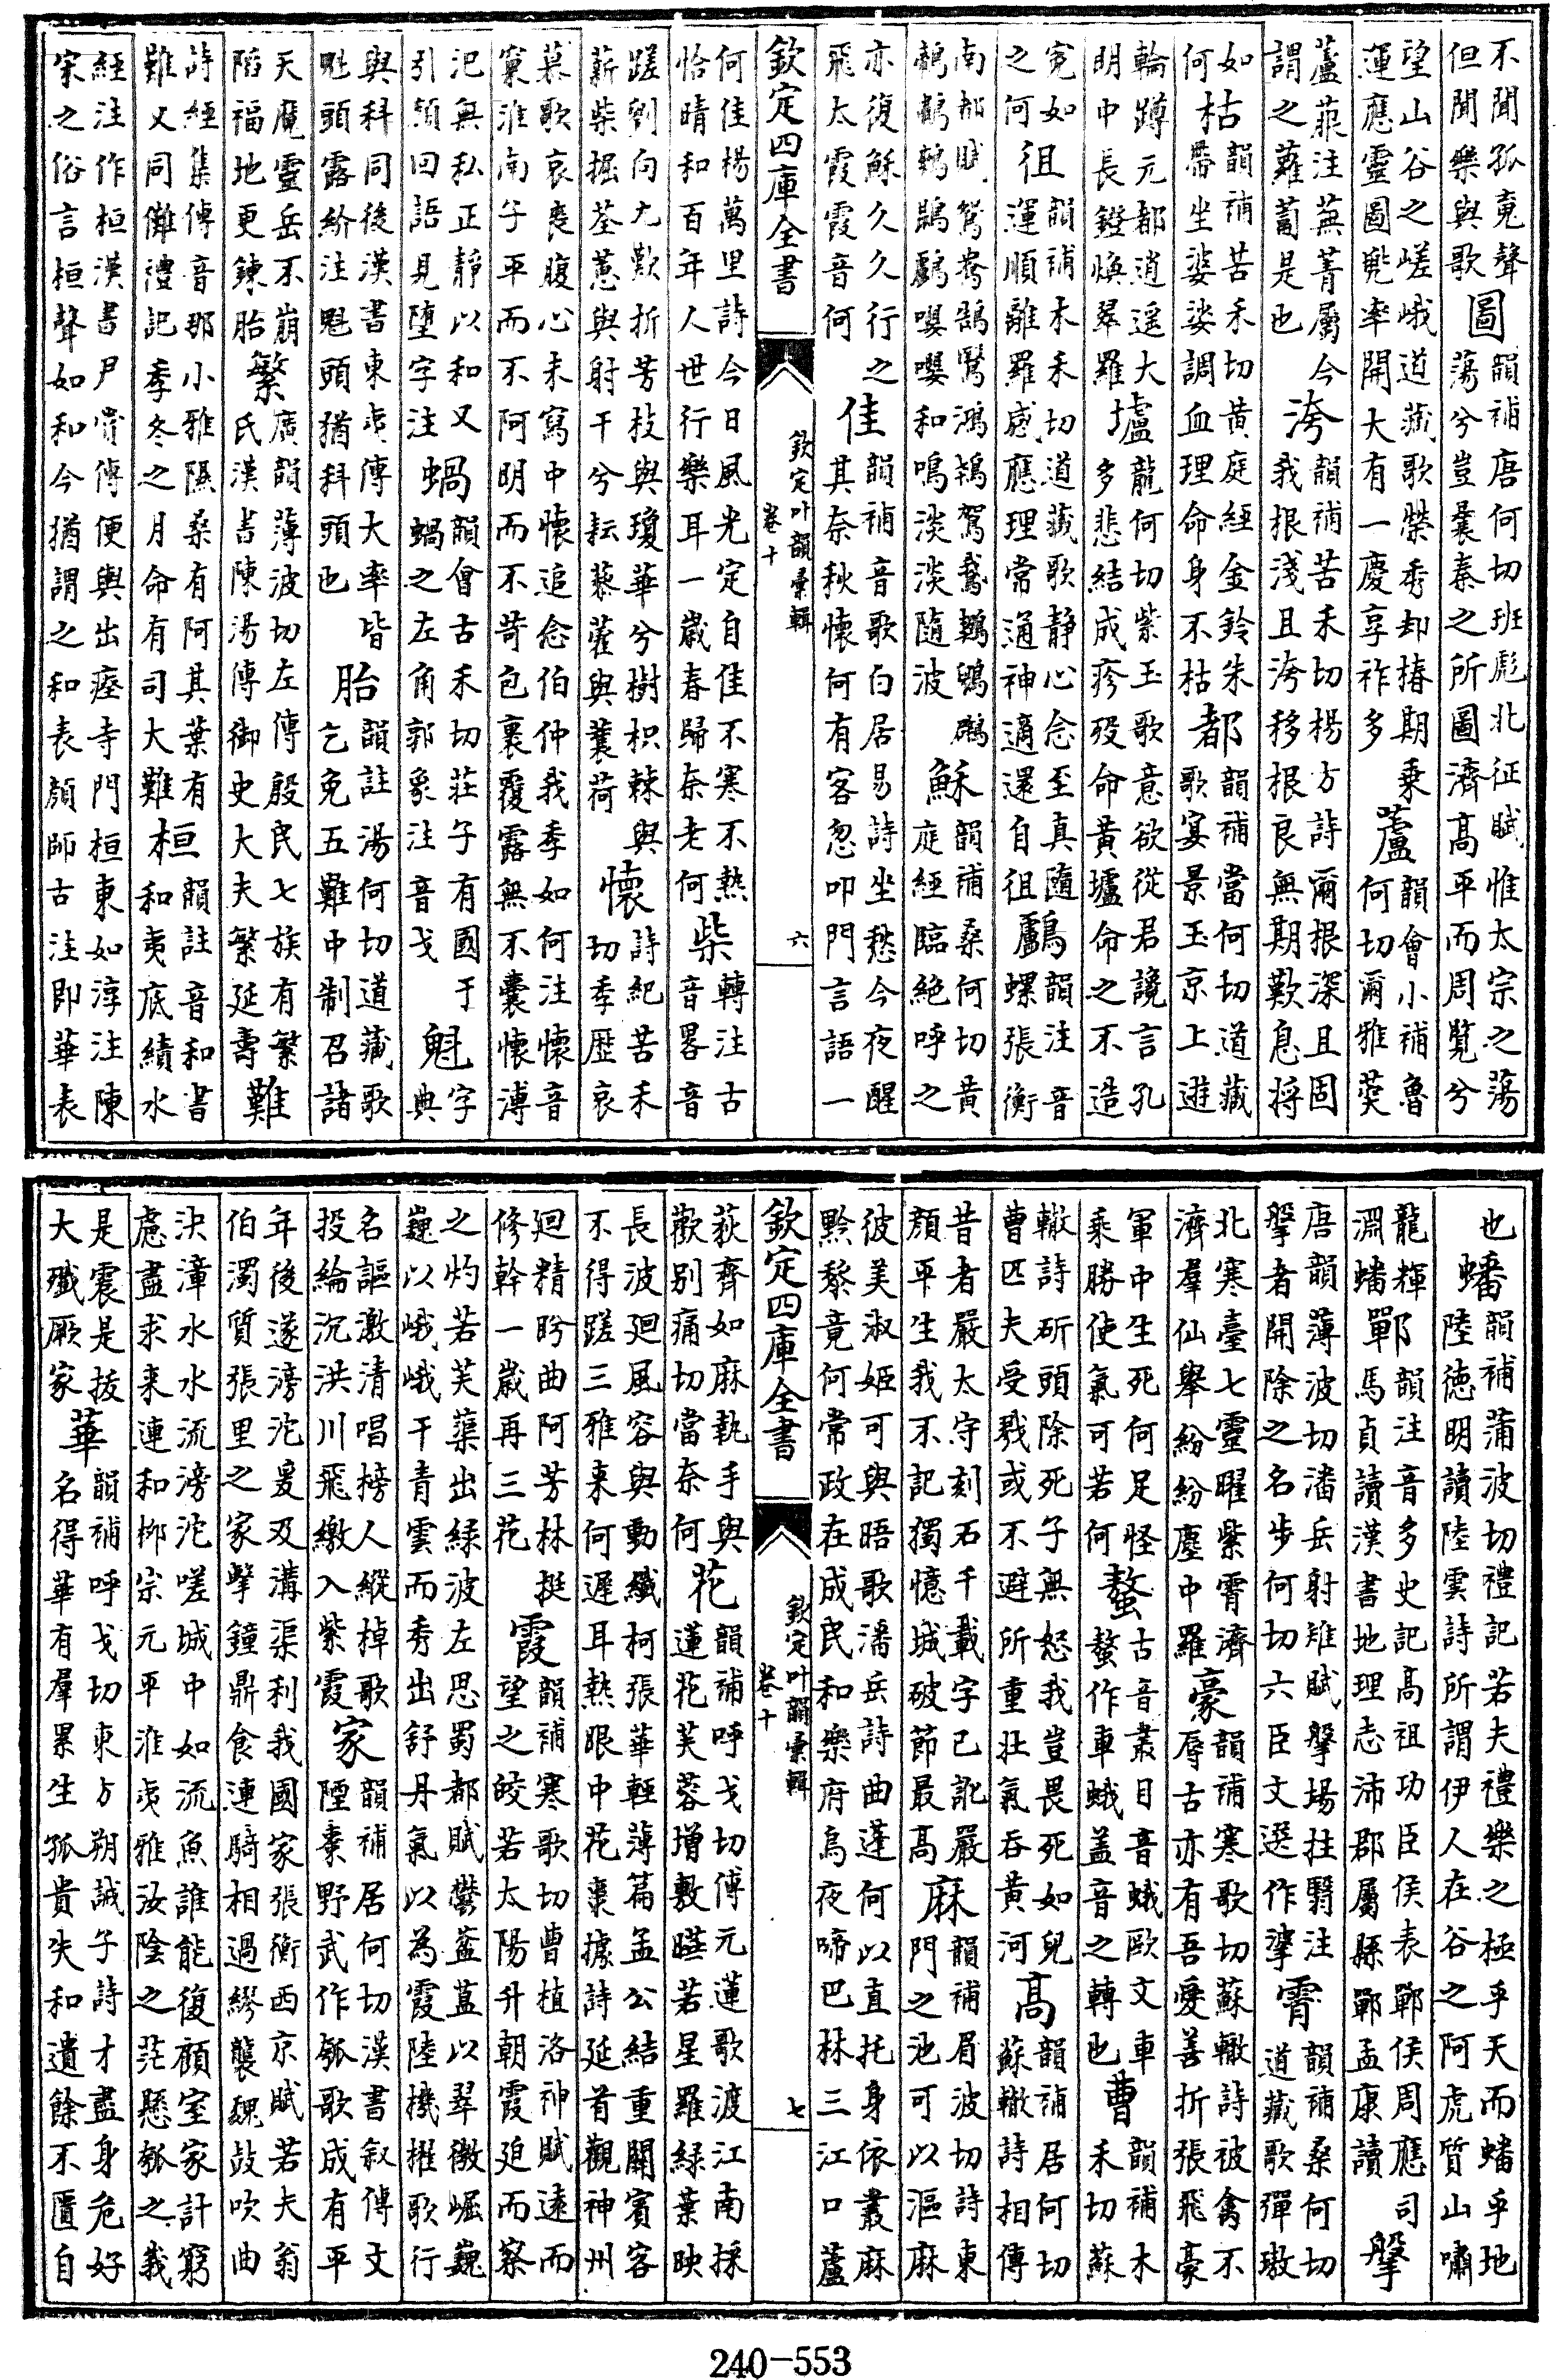 不聞孤寃聲但聞樂與歌圖韻補唐何切班彪北征賦惟太宗之蕩蕩兮豈曩秦之所圖濟髙平而周覽兮
望山谷之嵯峨道藏歌榮秀却椿期乗運應靈圖兠率開大有一慶享祚多蘆韻會小補魯何切爾雅葖
蘆萉注蕪菁屬今謂之蘿蔔是也洿韻補苦禾切楊方詩爾根深且固我根淺且洿移根良無期歎息将
如何枯韻補苦禾切黄庭經金鈴朱帶坐婆娑調血理命身不枯都韻補當何切道藏歌宴景玉京上逰
輪蹲元都逍遥大明中長鐙焕翠羅壚龍何切紫玉歌意欲從君讒言孔多悲結成疹殁命黄壚命之不造
寃如之何徂韻補木禾切道藏歌静心念至真隨運順離羅感應理常通神適還自徂鸕韻注音螺張衡
南都賦鴛鴦鵠鷖鴻鴇駕鵞鶤鶂鸕嚶嚶和鳴淡淡隨波穌韻補桑何切黄庭經臨絶呼之
亦復穌久久行之飛太霞霞音何佳韻補音歌白居易詩坐愁今夜醒其奈秋懷何有客忽叩門言語一
欽定四庫全書
欽定叶韻彚輯
卷十
六
何佳楊萬里詩今日風光定自佳不寒不熱恰晴和百年人世行樂耳一嵗春歸奈老何柴轉注古音畧音
蹉劉向九歎折芳枝與瓊華兮樹枳棘與薪柴掘荃蕙與射干兮耘藜藿與蘘荷懷詩紀苦禾切季歴哀
慕歌哀喪腹心未寫中懷追念伯仲我季如何注懷音窠淮南子平而不阿明而不苛包裹覆露無不囊懷溥
汜無私正靜以和又引頴曰語見墮字注蝸韻會古禾切莊子有國于蝸之左角郭象注音戈魁字典
與科同後漢書東夷傳大率皆魁頭露紒注魁頭猶科頭也胎韻註湯何切道藏歌乞免五難中制召諸
天魔靈岳不崩䧟福地更鍊胎繁廣韻薄波切左傳殷民七族有繁氏漢書陳湯傳御史大夫繁延壽難
詩經集傳音那小雅隰桑有阿其葉有難又同儺禮記季冬之月命有司大難桓韻註音和書和夷底績水
經注作桓漢書尹賞傳便輿出瘞寺門桓東如淳注陳宋之俗言桓聲如和今猶謂之和表顔師古注即華表
也蟠韻補蒲波切禮記若夫禮樂之極乎天而蟠乎地陸徳明讀陸雲詩所謂伊人在谷之阿虎質山嘯
龍輝淵蟠鄲韻注音多史記髙祖功臣侯表鄲侯周應司馬貞讀漢書地理志沛郡屬縣鄲孟康讀鞶
唐韻薄波切潘岳射雉賦鞶場拄翳注鞶者開除之名步何切六臣文選作擥霄韻補桑何切道藏歌彈璈
北寒臺七靈曜紫霄濟濟羣仙舉紛紛塵中羅豪韻補寒歌切蘇轍詩被禽不辱古亦有吾愛善折張飛豪
軍中生死何足怪乘勝使氣可若何螯古音叢目音蛾歐文車螯作車蛾盖音之轉也曹韻補木禾切蘇
轍詩斫頭除死子無怒我豈畏死如兒曹匹夫受戮或不避所重壯氣吞黄河髙韻補居何切蘇轍詩相傳
昔者嚴太守刻石千載字已訛嚴顔平生我不記獨憶城破節最髙麻韻補眉波切詩東門之池可以漚麻
彼美淑姬可與晤歌潘岳詩曲蓬何以直托身依叢麻黔黎竟何常政在成民和樂府烏夜啼巴林三江口蘆
欽定四庫全書
欽定叶韻彚輯
卷十
七
荻齊如麻執手與歡别痛切當奈何花韻補呼戈切傅元蓮歌渡江南採蓮花芙蓉增敷曄若星羅緑葉映
長波廻風容與動纖柯張華輕薄篇孟公結重關賓客不得蹉三雅來何遲耳熱眼中花棗據詩延首觀神州
廻精盻曲阿芳林挺修幹一嵗再三花霞韻補寒歌切曹植洛神賦逺而望之皎若太陽升朝霞廹而察
之灼若芙蕖出緑波左思蜀都賦鬱葐蒀以翠微崛巍巍以峨峨干青雲而秀出舒丹氣以為霞陸機櫂歌行
名謳激清唱榜人縱棹歌投綸沉洪川飛繳入紫霞家韻補居何切漢書叙傳文陻棗野武作瓠歌成有平
年後遂滂沱爰及溝渠利我國家張衡西京賦若夫翁伯濁質張里之家擊鐘鼎食連騎相過繆襲魏鼓吹曲
決漳水水流滂沱嗟城中如流魚誰能復顧室家計窮慮盡求來連和栁宗元平淮夷雅汝陰之茫懸瓠之峩
是震是拔大殱厥家華韻補呼戈切東方朔誡子詩才盡身危好名得華有羣累生孤貴失和遺餘不匱自
240-553